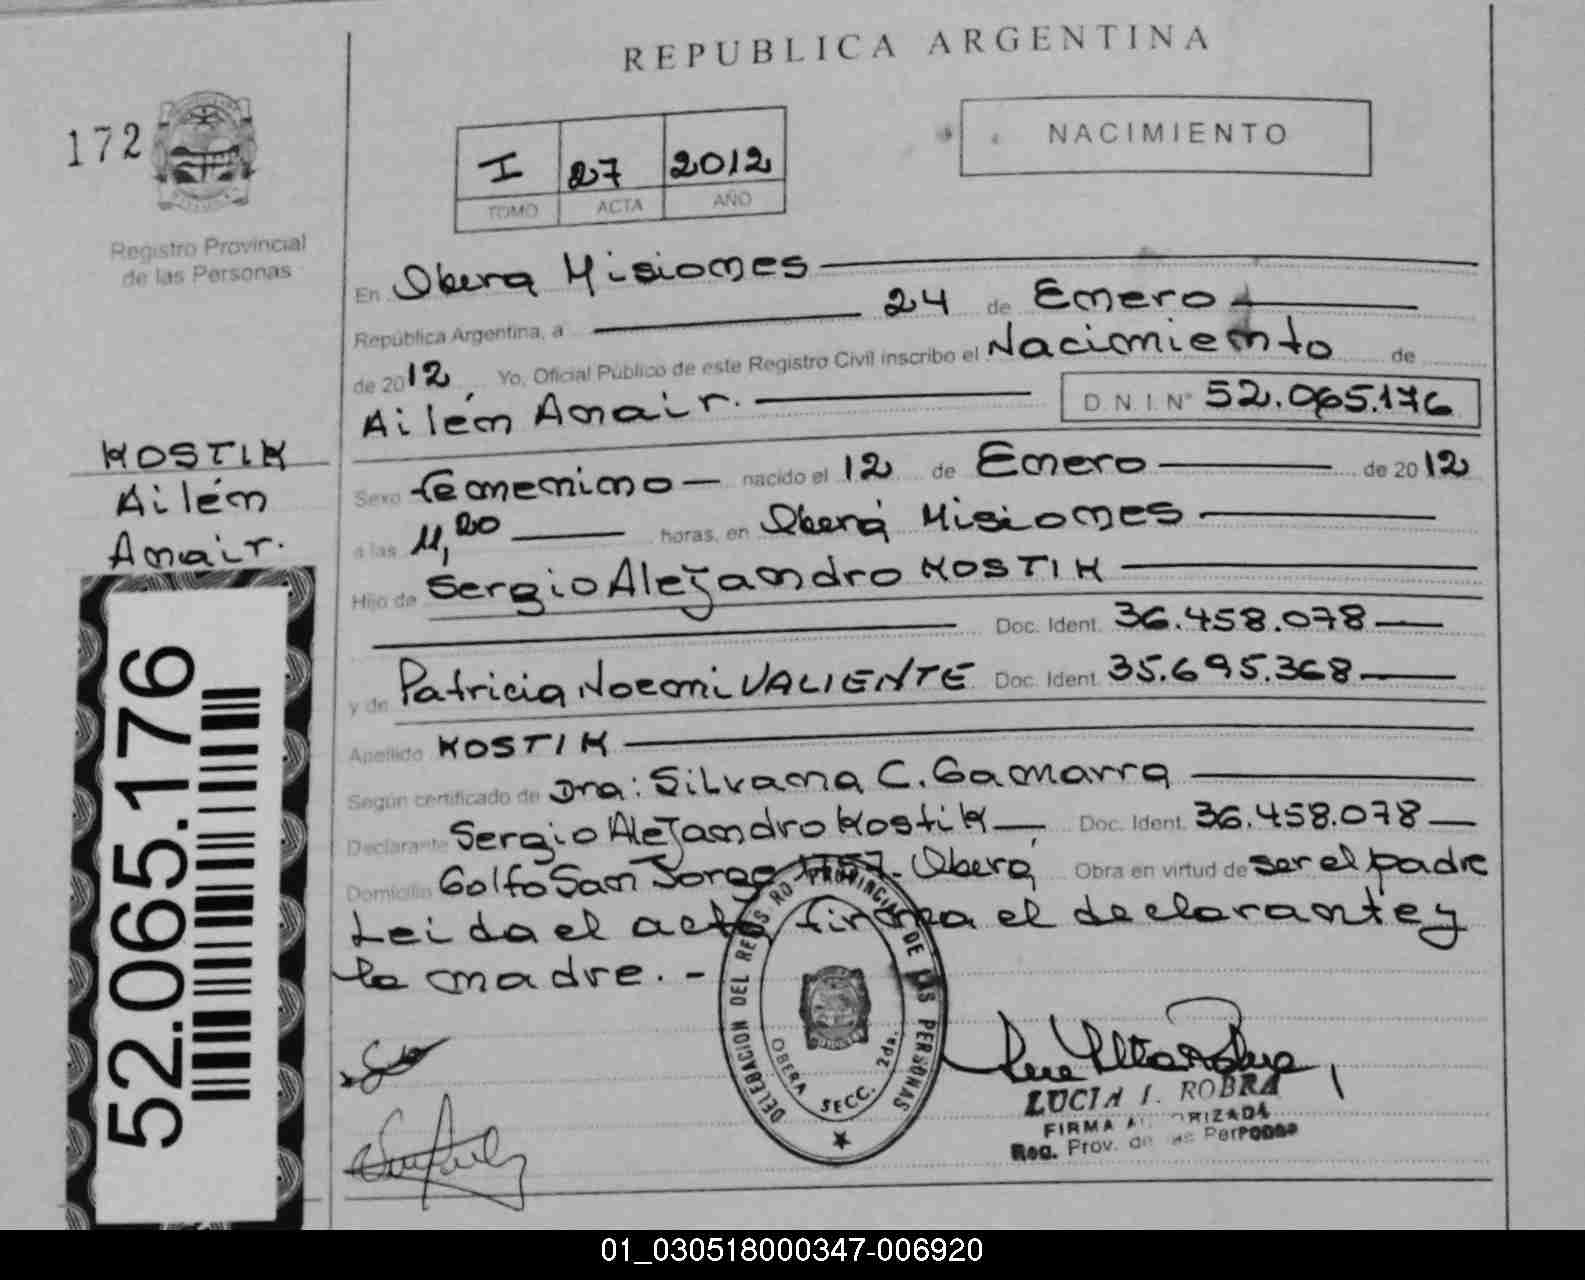 REPUBLICA ARGENTINA
172
I 27 2012
TOMO ACTA AÑO
NACIMIENTO
Registro Provincial
de las Personas
En Obera Misiones
República Argentina, a 24 de Enero
de 2012 Yo, Oficial Público de este Registro Civil inscribo el Nacimiento de
Ailén Anair. D.N.I. Nº 52.065.176
KOSTIK
Ailén
Anair.
Sexo femenino nacido el 12 de Enero de 2012
a las 11,20 horas, en Oberá Misiones
Hijo de Sergio Alejandro KOSTIK
Doc. Ident. 36.458.078
y de Patricia Noemi VALIENTE Doc. Ident. 35.695.368
Apellido KOSTIK
Según certificado de Dra: Silvana C. Gamarra
Declarante Sergio Alejandro Kostik Doc. Ident. 36.458.078
Domicilio Golfo San Jorge Oberá Obra en virtud de ser el padre
Leida el acta firma el declarante y
la madre.-
52.065.176
DELEGACION DEL REGISTRO PROVINCIAL DE LAS PERSONAS
OBERA SECC. 2da.
LUCIA I. ROBRA
FIRMA AUTORIZADA
Reg. Prov. de las Personas
01_030518000347-006920